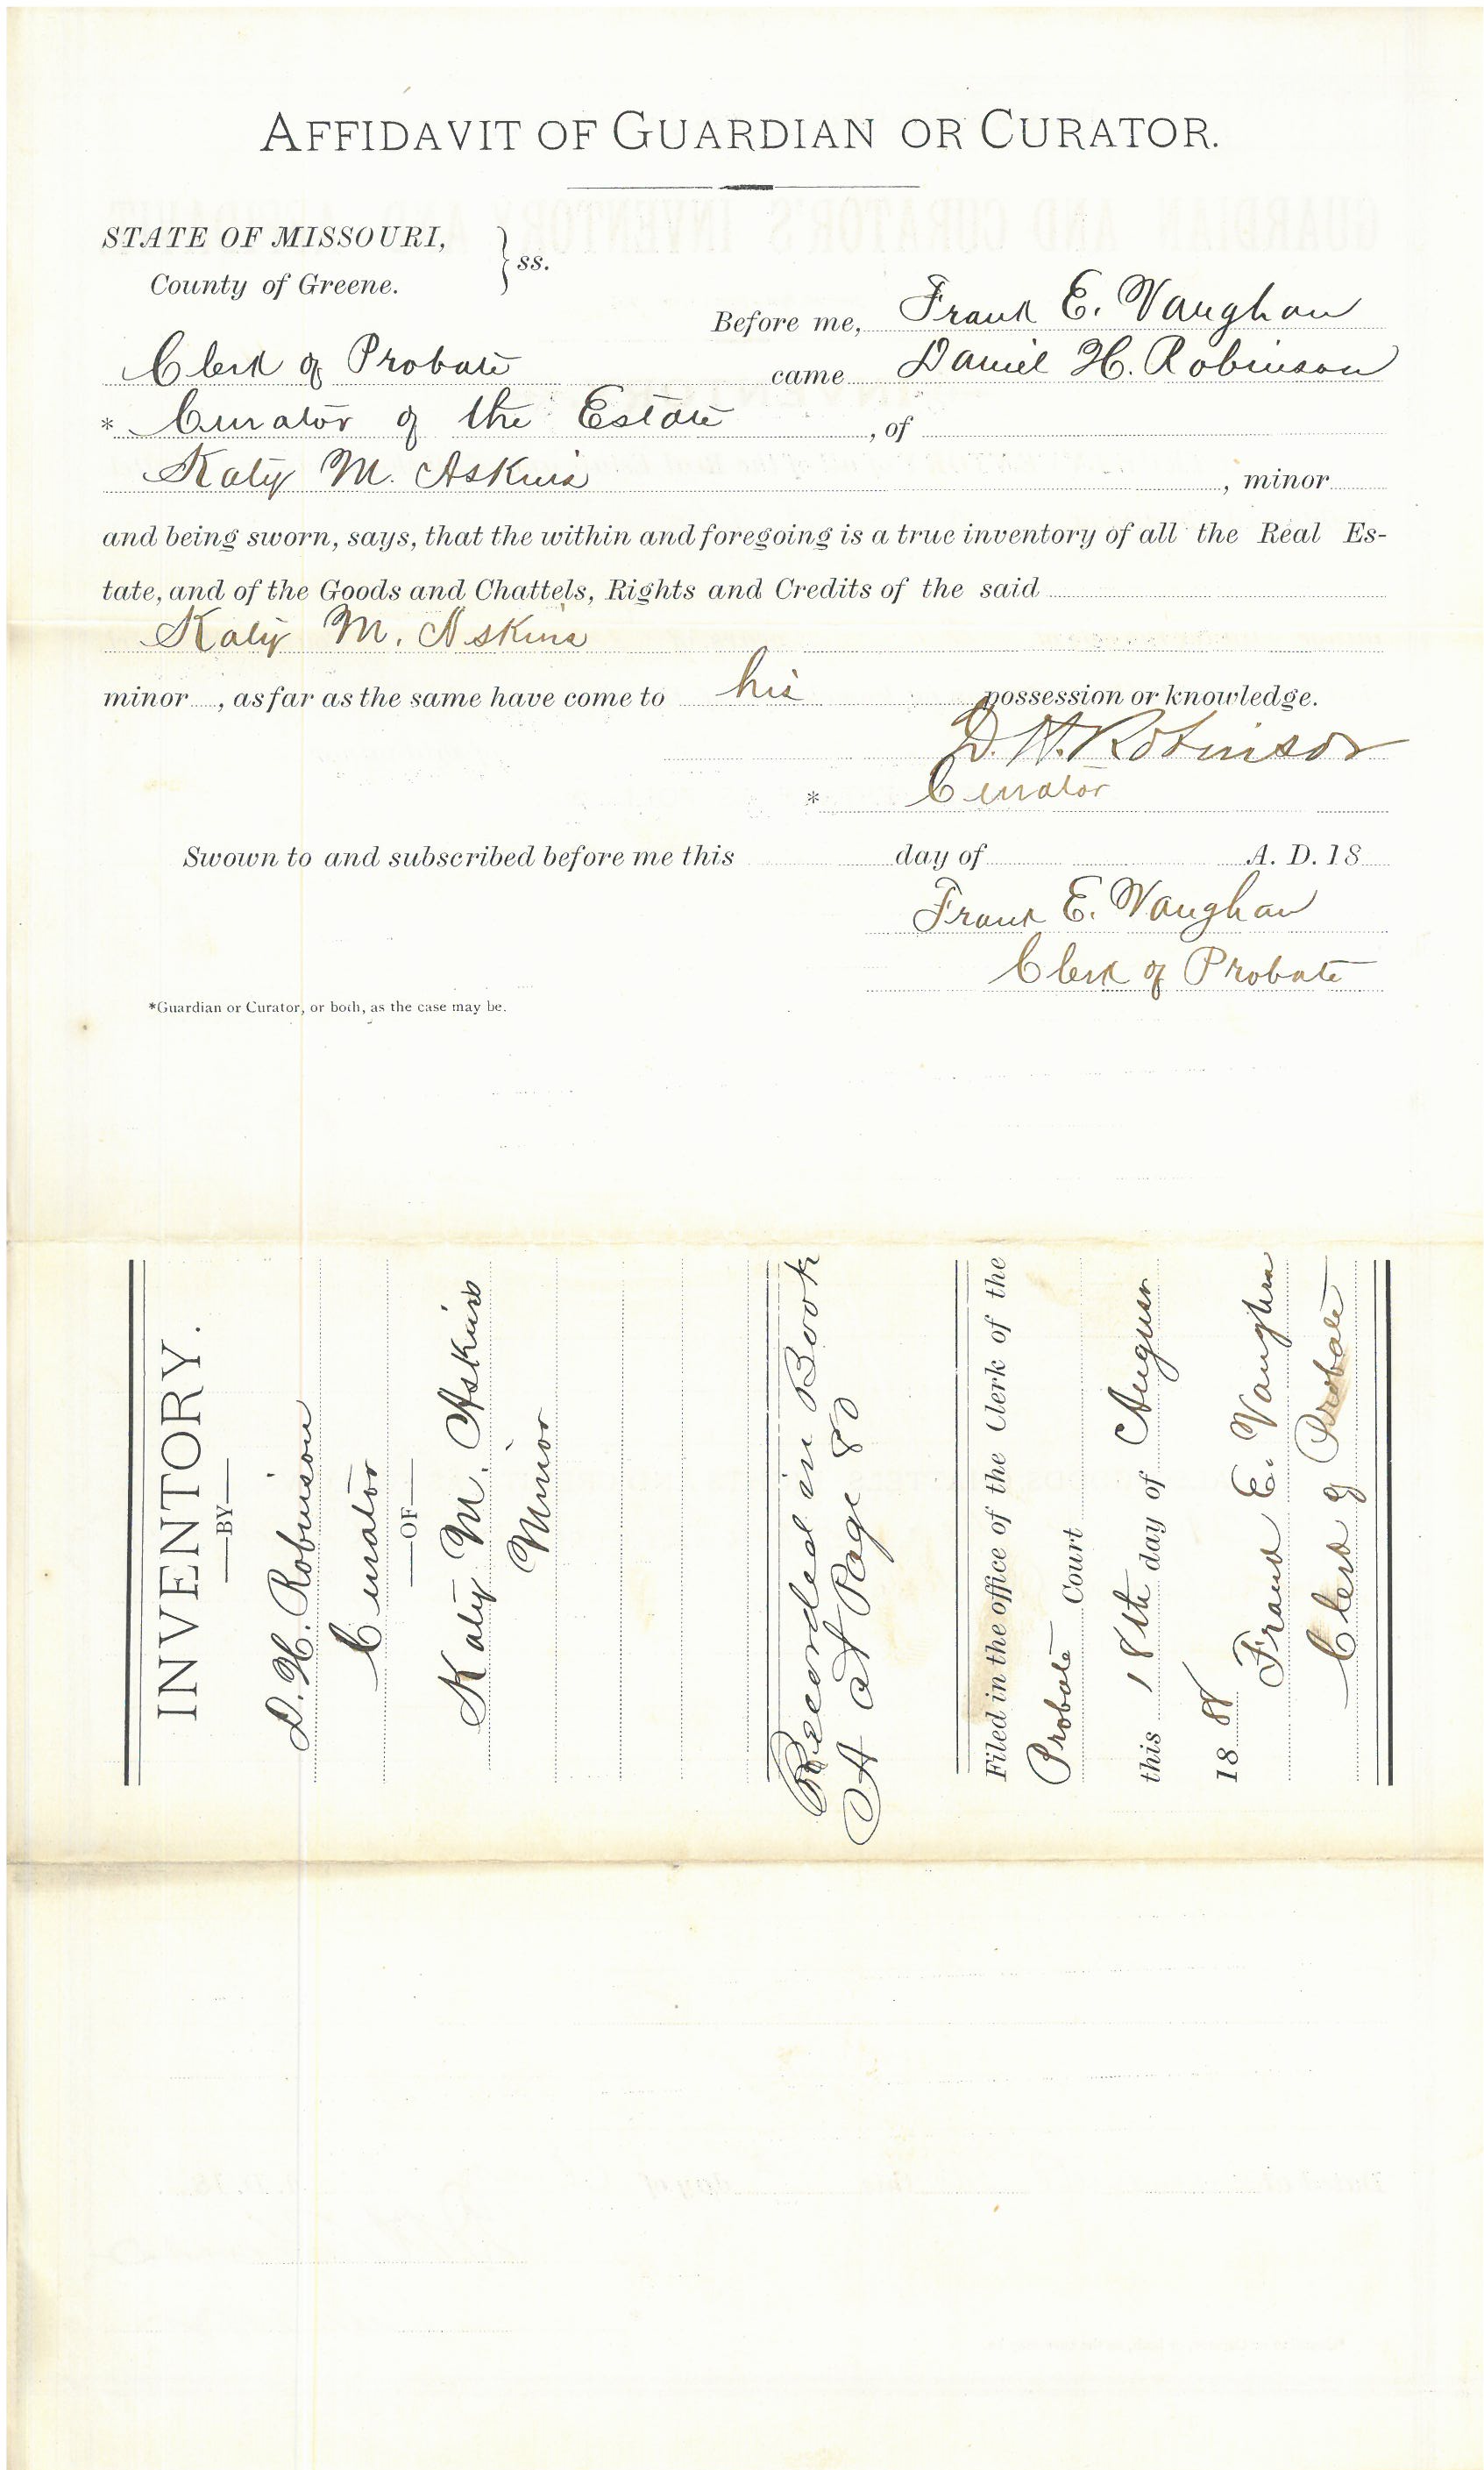 AFFIDAVIT OF GUARDIAN OR CURATOR.
STATE OF MISSOURI,
County of Greene. } ss.
Before me, Frank E. Vaughan
Clerk of Probate came Daniel H. Robinson
* Curator of the Estate, of
Katy M. Askins, minor
and being sworn, says, that the within and foregoing is a true inventory of all the Real Es-
tate, and of the Goods and Chattels, Rights and Credits of the said
Katy M. Askins
minor, as far as the same have come to his possession or knowledge.
D. H. Robinson
* Curator
Swown to and subscribed before me this day of A. D. 18
Frank E. Vaughan
Clerk of Probate
*Guardian or Curator, or both, as the case may be.
INVENTORY.
—BY—
D. H. Robinson
Curator
—OF—
Katy M. Askins
Minor
Recorded in Book
A at Page 80
Filed in the office of the Clerk of the
Probate Court
this 18th day of August
18 88
Frank E. Vaughan
Clerk of Probate